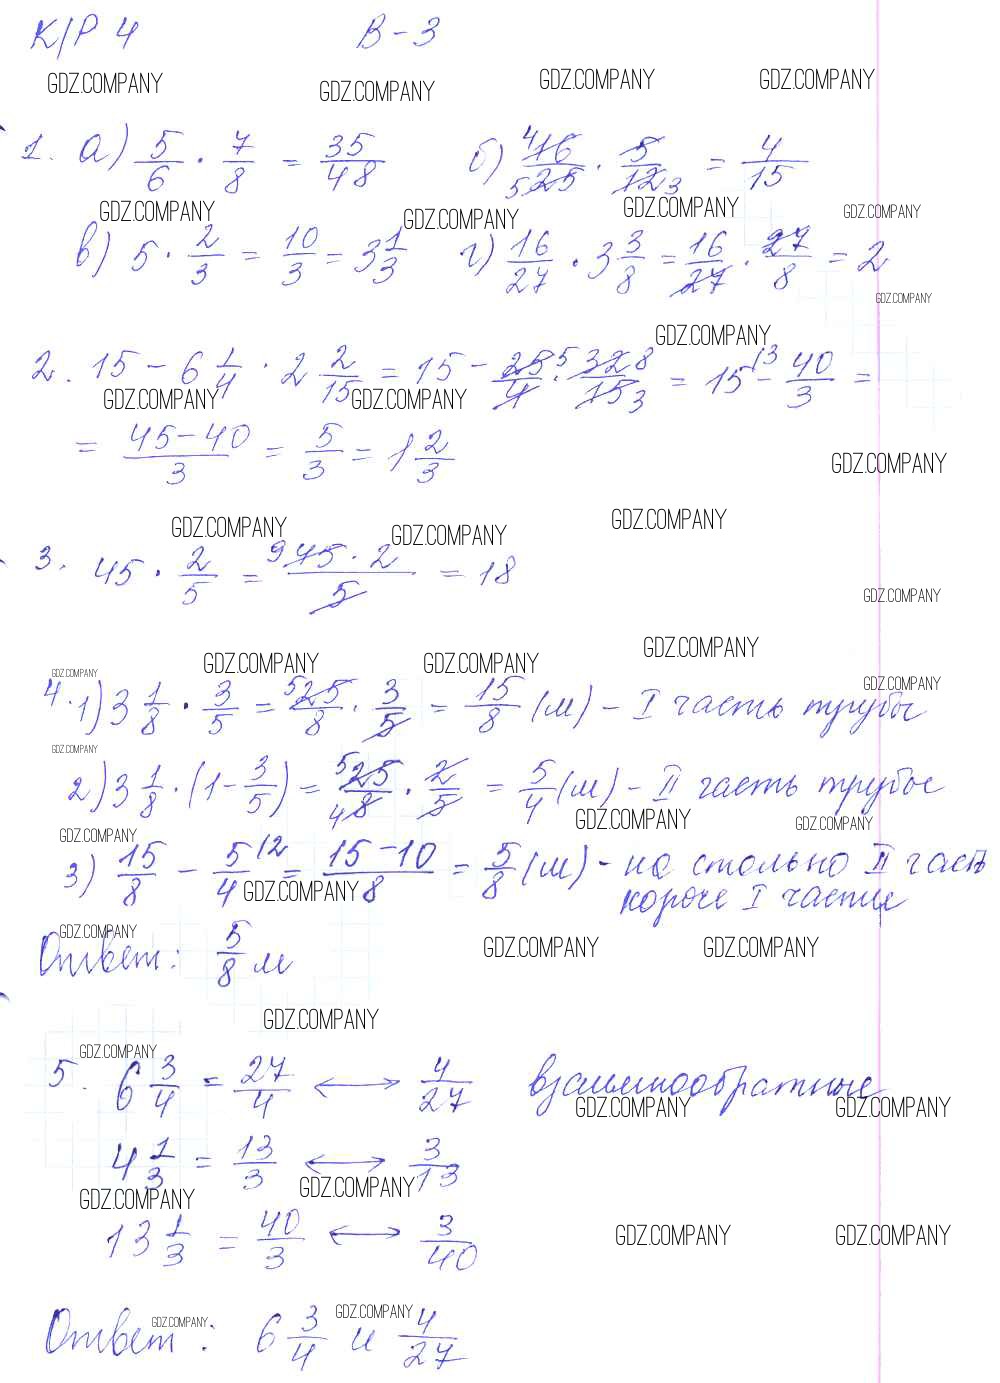 К/Р 4 В-3
GDZ.COMPANY GDZ.COMPANY GDZ.COMPANY GDZ.COMPANY
1. а) 5/6 · 7/8 = 35/48 б) 4 16/5 25 · 5/12 3 = 4/15
GDZ.COMPANY GDZ.COMPANY GDZ.COMPANY GDZ.COMPANY
в) 5 · 2/3 = 10/3 = 3 1/3 г) 16/27 · 3 3/8 = 16/27 · 27/8 = 2
GDZ.COMPANY
GDZ.COMPANY
2. 15 - 6 1/4 · 2 2/15 = 15 - 25 5/4 · 32 8/15 3 = 15 13 - 40/3 =
GDZ.COMPANY GDZ.COMPANY
= 45-40/3 = 5/3 = 1 2/3
GDZ.COMPANY
GDZ.COMPANY GDZ.COMPANY GDZ.COMPANY
3. 45 · 2/5 = 9 45 · 2/5 = 18
GDZ.COMPANY
GDZ.COMPANY GDZ.COMPANY GDZ.COMPANY GDZ.COMPANY
GDZ.COMPANY
4. 1) 3 1/8 · 3/5 = 5 25/8 · 3/5 = 15/8 (м) - I часть трубы
GDZ.COMPANY
2) 3 1/8 · (1 - 3/5) = 5 25/4 8 · 2/5 = 5/4 (м) - II часть трубы
GDZ.COMPANY GDZ.COMPANY GDZ.COMPANY
3) 15/8 - 5 12/4 = 15-10/8 = 5/8 (м) - на столько II часть
GDZ.COMPANY
короче I части
GDZ.COMPANY GDZ.COMPANY GDZ.COMPANY
Ответ: 5/8 м
GDZ.COMPANY
GDZ.COMPANY
5. 6 3/4 = 27/4 ⟷ 4/27 взаимнообратные
GDZ.COMPANY GDZ.COMPANY
4 1/3 = 13/3 ⟷ 3/13
GDZ.COMPANY GDZ.COMPANY
13 1/3 = 40/3 ⟷ 3/40
GDZ.COMPANY GDZ.COMPANY
GDZ.COMPANY GDZ.COMPANY
Ответ: 6 3/4 и 4/27